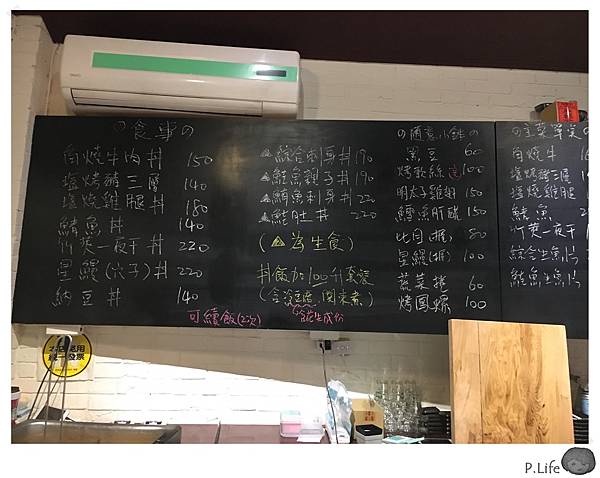 の食事の
自燒牛肉丼 150
塩烤豬三層 140
塩燒雞腿丼 180
鯖魚丼 140
竹筴一夜干丼 220
星鰻(穴子)丼 220
納豆丼 140
可續飯(2次)
綜合刺身丼 190
鮭魚親子丼 190
鮪魚刺身丼 220
鮭肚丼 220
(為生食)
丼飯加100升套餐
(含沙拉, 関東煮)
の小鉢の
黑豆 60
烤軟絲 100
明太子雞翅 150
鱈魚肝 150
比目(握) 80
星鰻(握) 100
蔬菜捲 60
烤圓螺 100
の主菜單点
自燒牛
塩烤豬三層
塩燒雞腿
鯖魚
竹筴一夜干
綜合生魚片
鮭魚生魚片
統一發票
P.Life